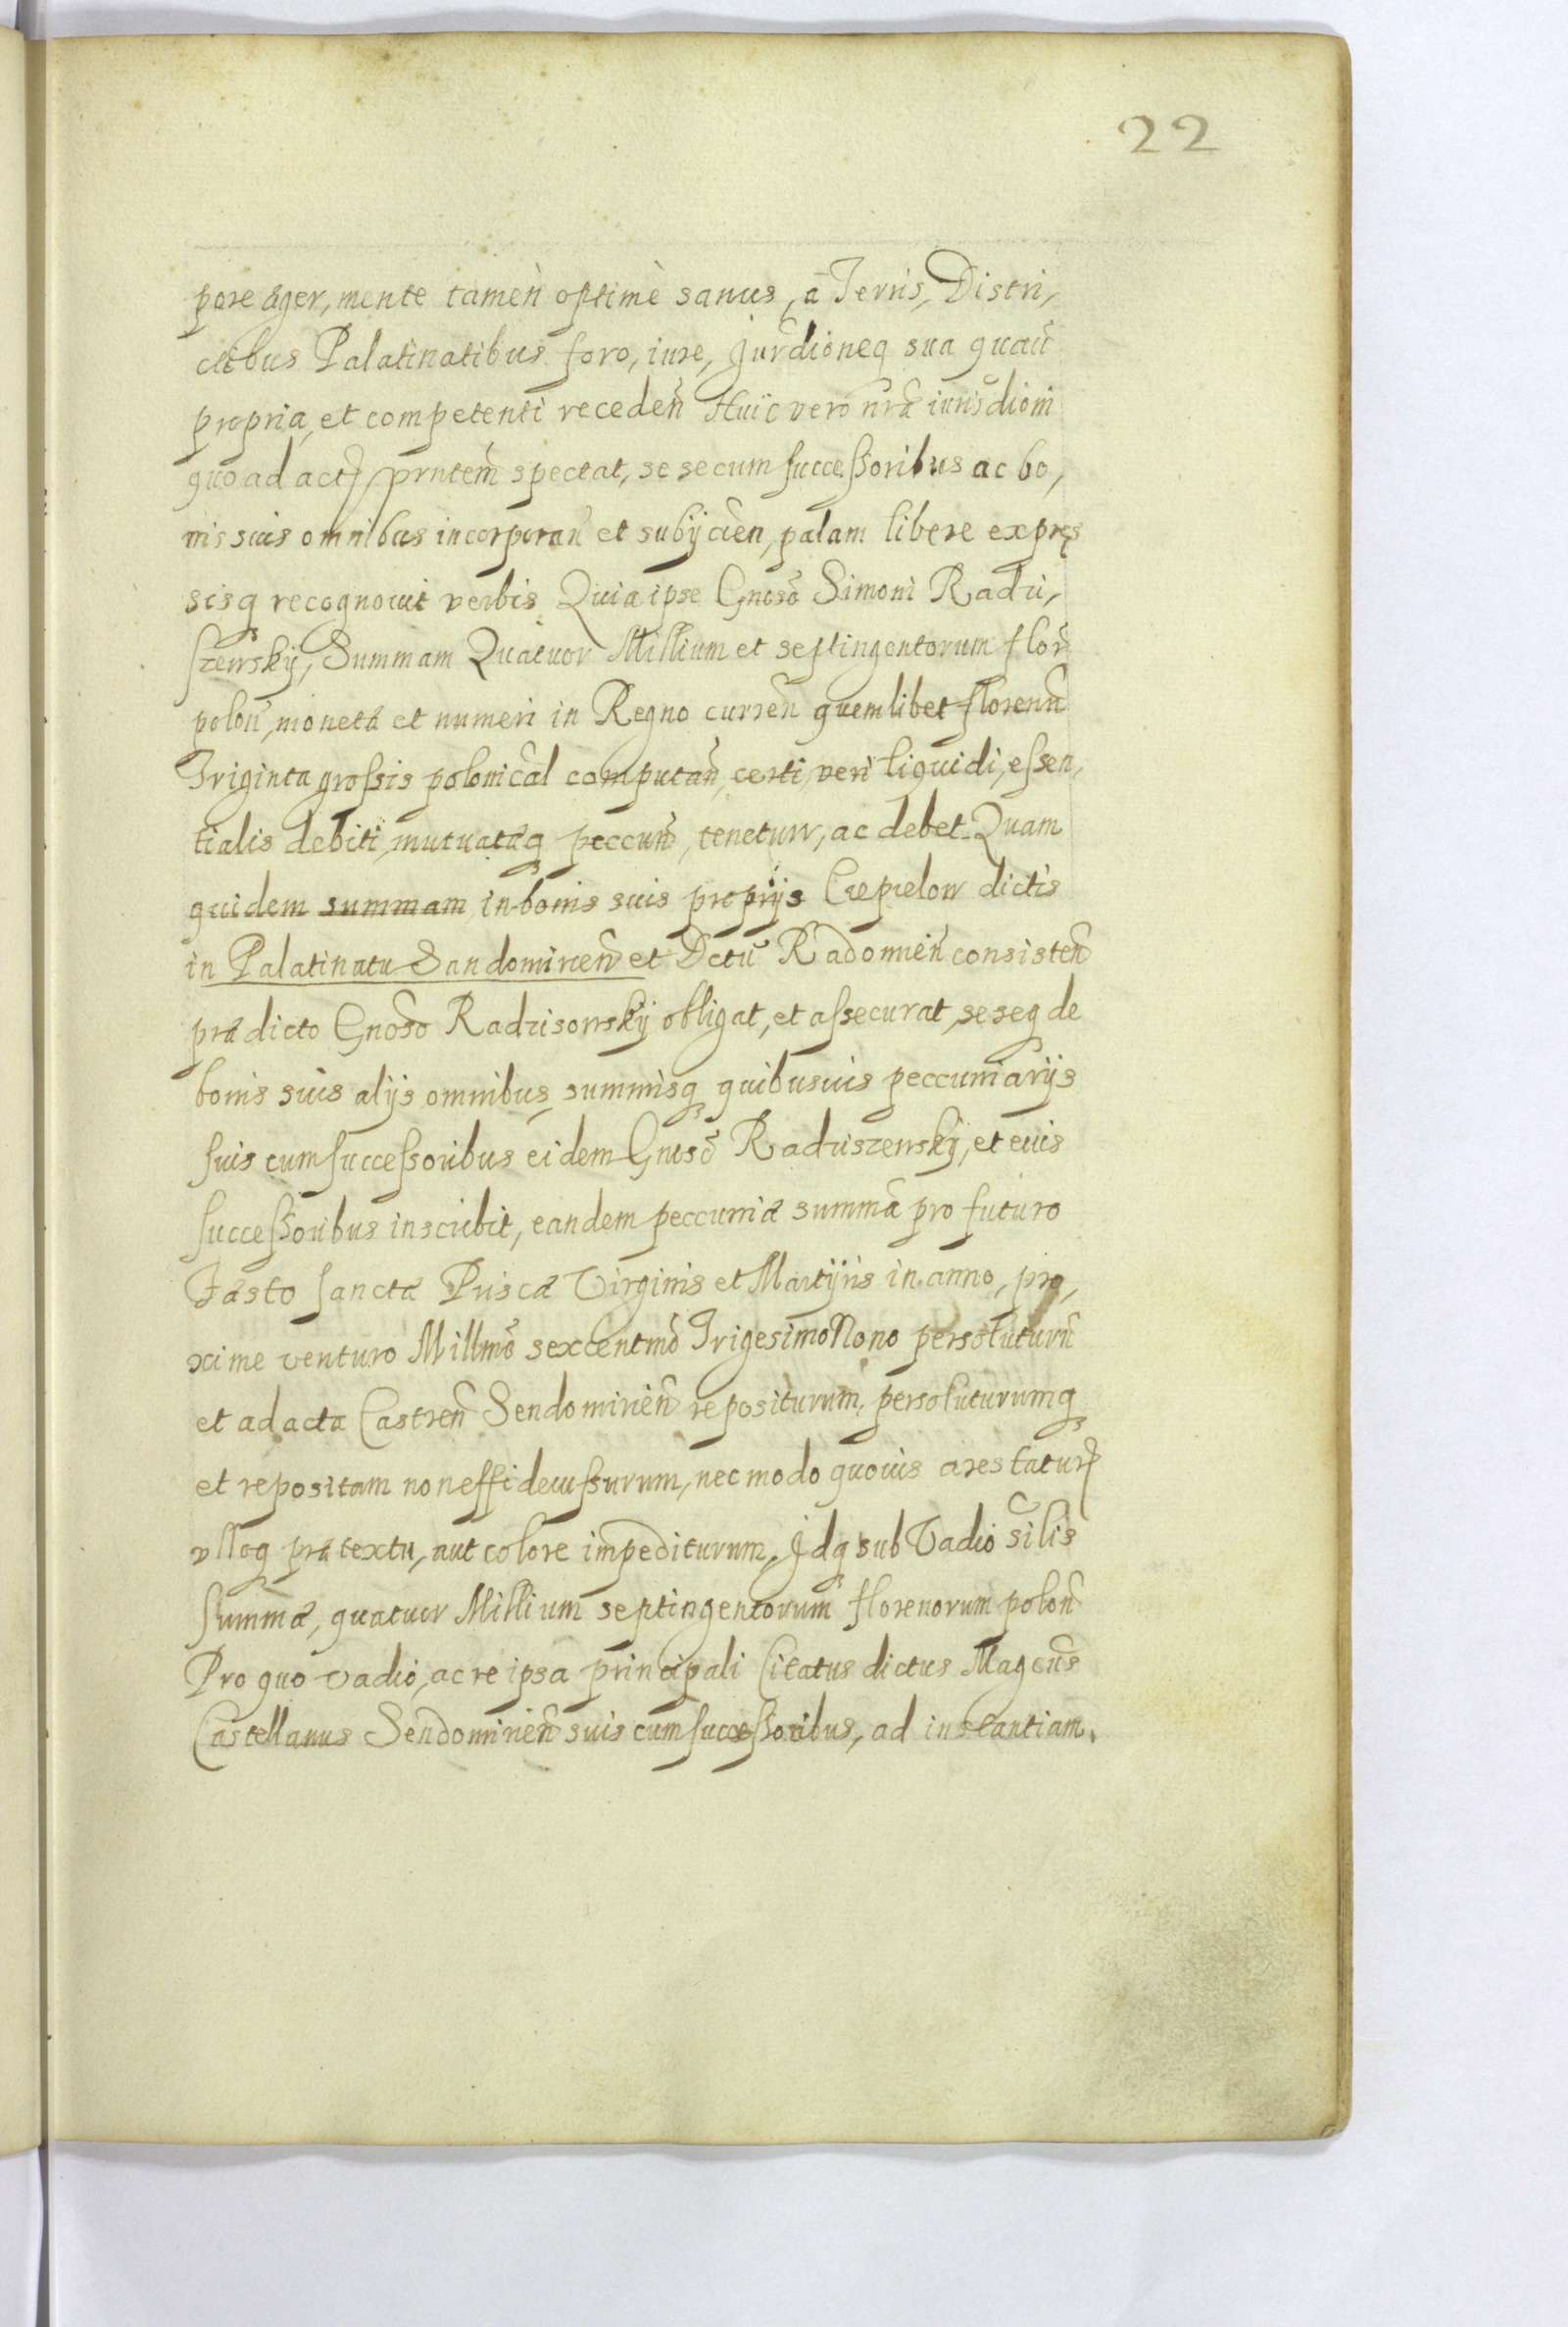 22
pore æger, mente tamen optimè sanus, a Terris, Distri,
ctibus Palatinatibus foro, iure, Jurdioneq sua quaũ
propria, et competenti receden̄ Huic vero nrã iurisdioni
quo ad actũ prntem spectat, se se cum successoribus ac bo,
nis suis omnibus incorporan̄ et subijcien, palam libere expręs
sisq recognouit verbis Quia ipse Gnoso Simoni Radzi,
szewskij, Summam Quatuor Millium et septingentorum flor̄
polon̄, monetæ et numeri in Regno curren̄ quemlibet florenũ
Triginta grossis polonical computan̄, certi, veri liquidi, essen,
tialis debiti, mutuatæq peccun̄, tenetur, ac debet. Quam
quidem summam in bonis suis proprijs Cepielow dictis
in Palatinatu Sandomirien̄ et Dctũ Radomien̄ consisten̄
prædicto Gnoso Radzisowskij obligat, et assecurat, seseq de
bonis suis alijs omnibus, summisq quibusuis peccuniarijs
suis cum successoribus eidem Gnosõ Radziszewskij, et euis
successoribus inscribit, eandem peccuniæ summã pro futuro
Fæsto sanctæ Priscæ Virginis et Martijris in anno, pro,
xime venturo Millmõ sexcentmõ Trigesimo Nono persoluturũ
et ad acta Castren̄ Sendomirien̄ repositurum, persoluturumq
et repositam non effidecussurum, nec modo quouis arestaturũ
vlloq prætextu, aut colore impediturum, Jdq sub Vadio silis
summæ, quatuor Millium septingentorum florenorum polon̄
Pro quo vadio, ac re ipsa principali Citatus dictus Magcus
Castellanus Sendomirien̄ suis cum successoribus, ad instantiam.